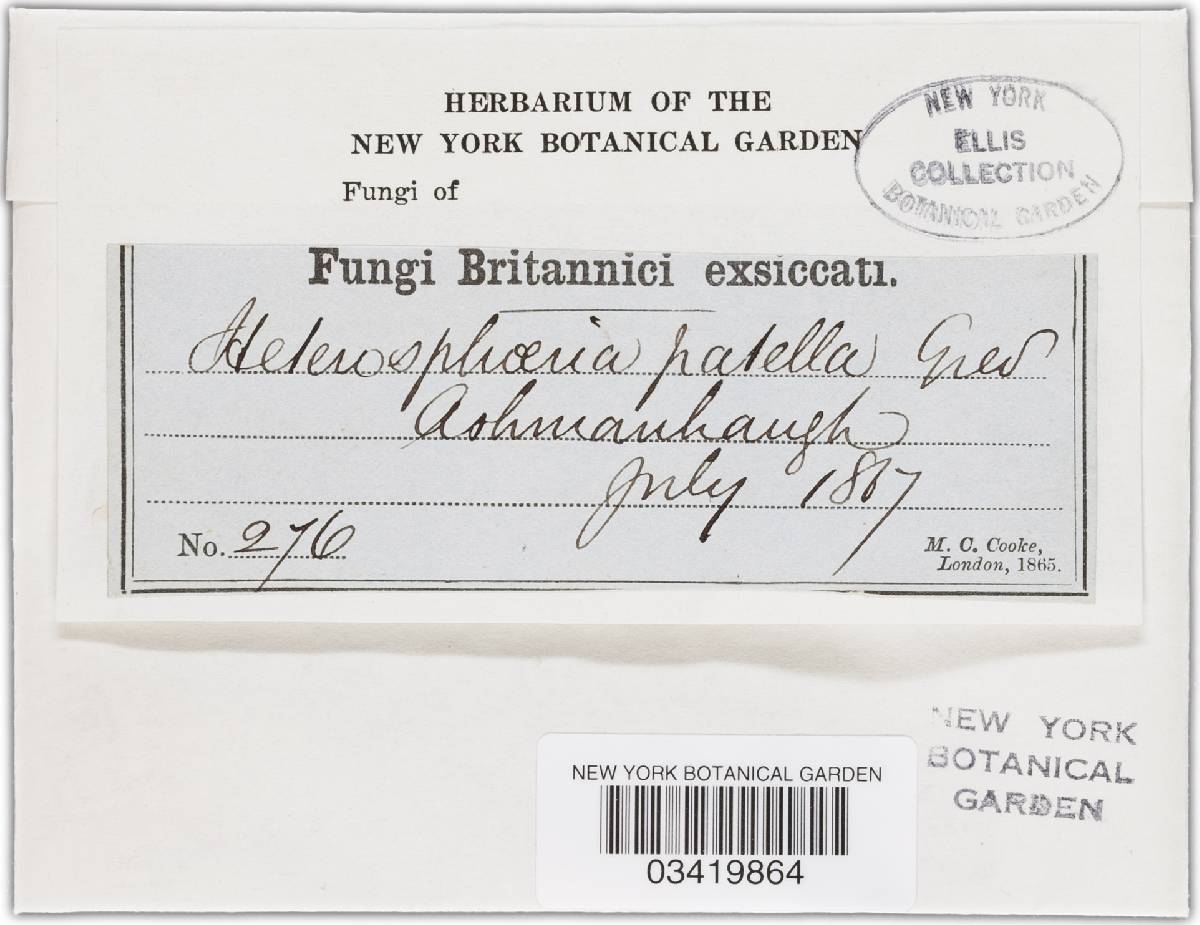 HERBARIUM OF THE
NEW YORK BOTANICAL GARDEN
Fungi of
NEW YORK
ELLIS
COLLECTION
BOTANICAL GARDEN
Fungi Britannici exsiccati.
Heterosphæria patella Grev
Ashmanhaugh
July 1867
No. 276
M. C. Cooke,
London, 1865.
NEW YORK
BOTANICAL
GARDEN
NEW YORK BOTANICAL GARDEN
03419864